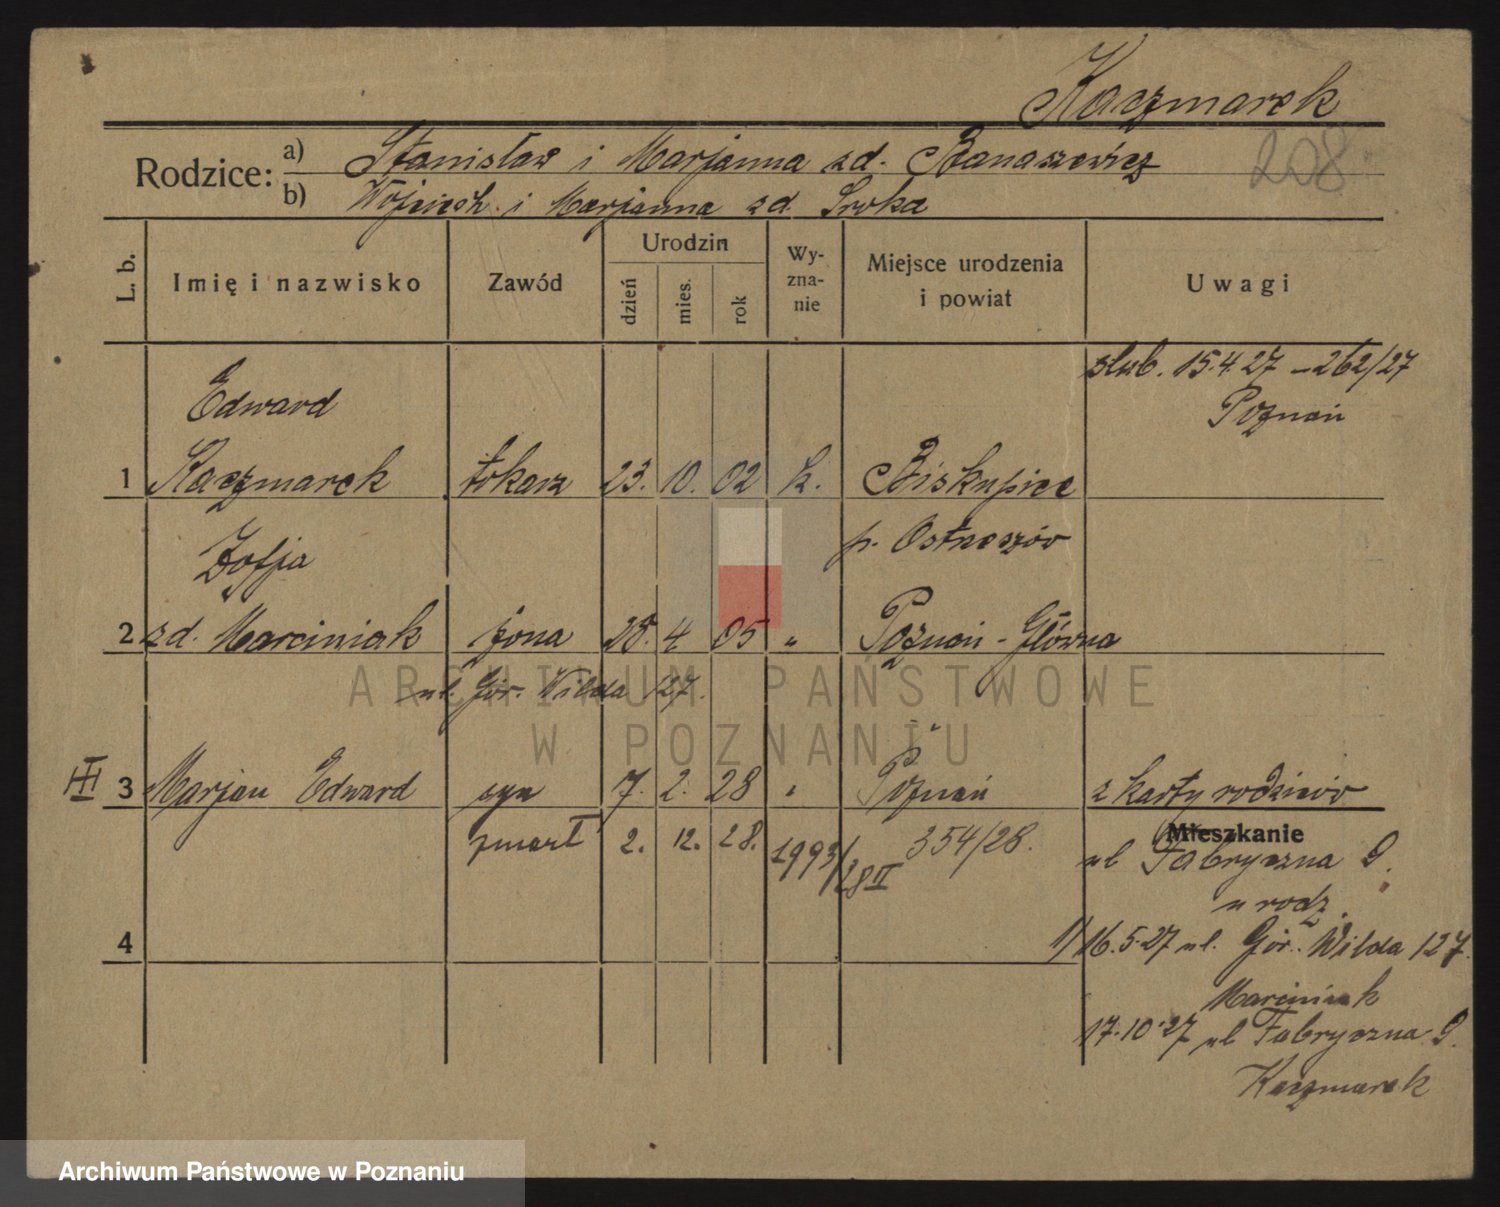 Kaczmarek
208
Rodzice: a) Stanisław i Marjanna zd. Banaszewicz
b) Wojciech i Marjanna zd. Sroka
L. b. Imię i nazwisko Zawód Urodzin dzień mies. rok Wy-zna-nie Miejsce urodzenia i powiat Uwagi
ślub. 15.4.27 - 262/27
Poznań
Edward
1 Kaczmarek tokarz 23. 10. 02 k. Biskupice
p. Ostrzeszów
Zofja
2 zd. Marciniak żona 28. 4 05 " Poznań - Główna
ul. Gór. Wilda 127.
III 3 Marjan Edward syn 7. 2. 28 " Poznań z karty rodziców
zmarł 2. 12. 28. 1993/28 II 354/28.
Mieszkanie
ul Fabryczna 9.
u rodz.
4
1/ 16.5.27 ul. Gór. Wilda 127.
Marciniak
17.10.27 ul Fabryczna 9.
Kaczmarek
ARCHIWUM PAŃSTWOWE
W POZNANIU
Archiwum Państwowe w Poznaniu